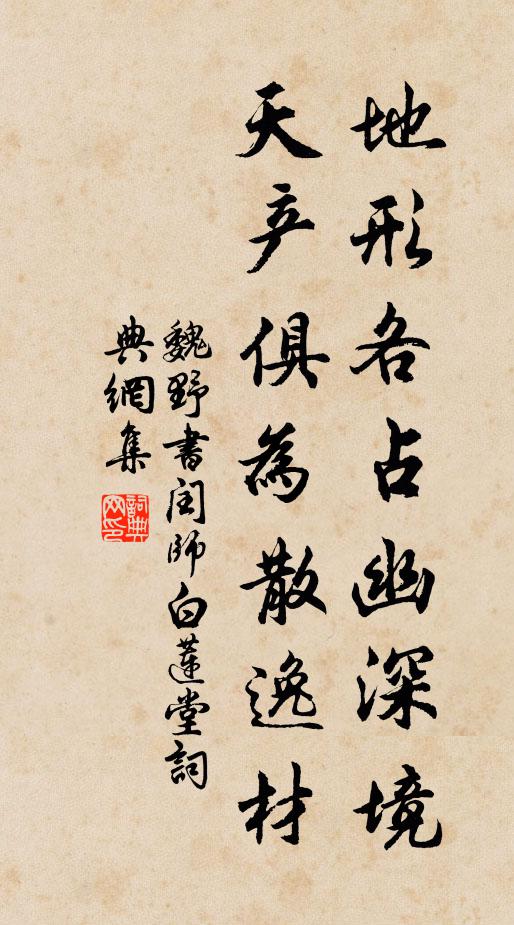 地形各占幽深境
天产俱為散逸材
魏野書闰師白蓮堂詞
典網集
詞典
网印